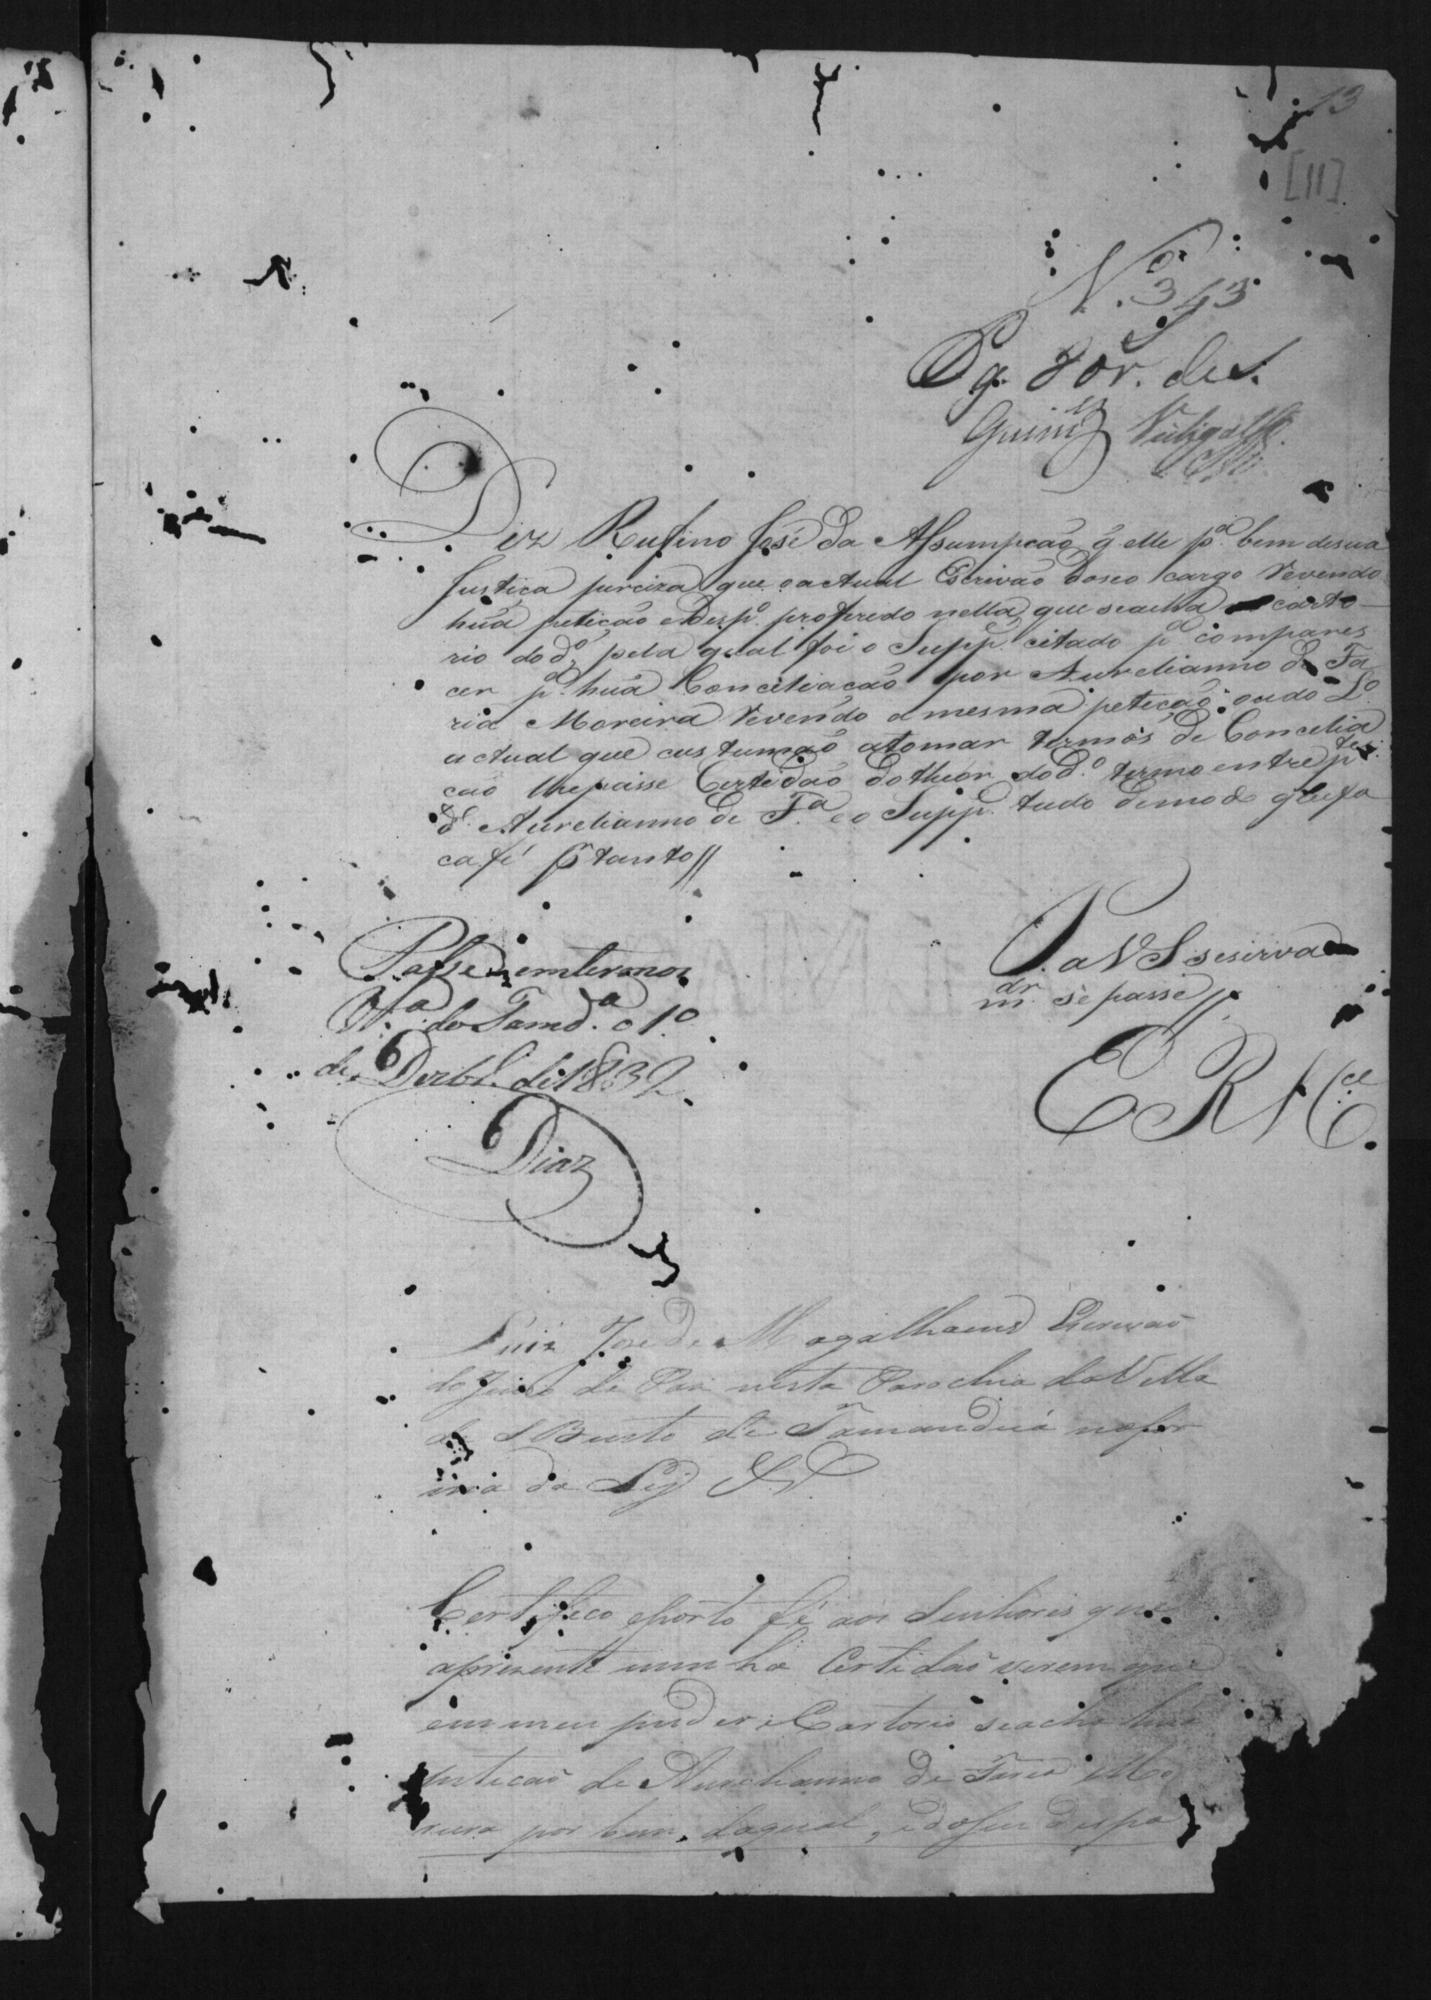 13
[11]
N. 343
Pg. 80 r. de
Diz Rufino José da Assumpcaõ q. elle pª. bem desua
Justiça perciza que oactual Escrivaõ doseo cargo Vevendo
huã peticaõ eDespº. proferedo nella, que seacha carto
rio dodº. pela qual foi o Suppe. citado pª compares
cer pª huã Conceliacaõ por Aurelianno de Fa
ria Moreira Vevendo amesma peticaõ, oudo Lº.
actual que custumaõ atomar termos de Concelia
caõ lhepasse Certidaõ dotheor dodº. termo entre pte.
dº. Aurelianno de Fª. eo Suppe. tudo demodo q lefa
café pr tanto //
P. a V S seserva
mdr sepasse //
Passe emtermos
Vª. do Tamdª. o 1º.
de Dezbr. de 1832
E R Mce
Diaz
Luiz Jose de Magalhaens Escrivaõ
do Juizo de Paz nesta Parochia da Villa
de S Bento de Tamanduá nafor
ma da Ley &&
Certifeco eporto fé aos Senhores que
aprezente minha Certidaõ virem que
emmeu puder eCartorio seacha huã
peticaõ de Aurelianno de Faria Mo
reira por bem, daqual, edoseu despa